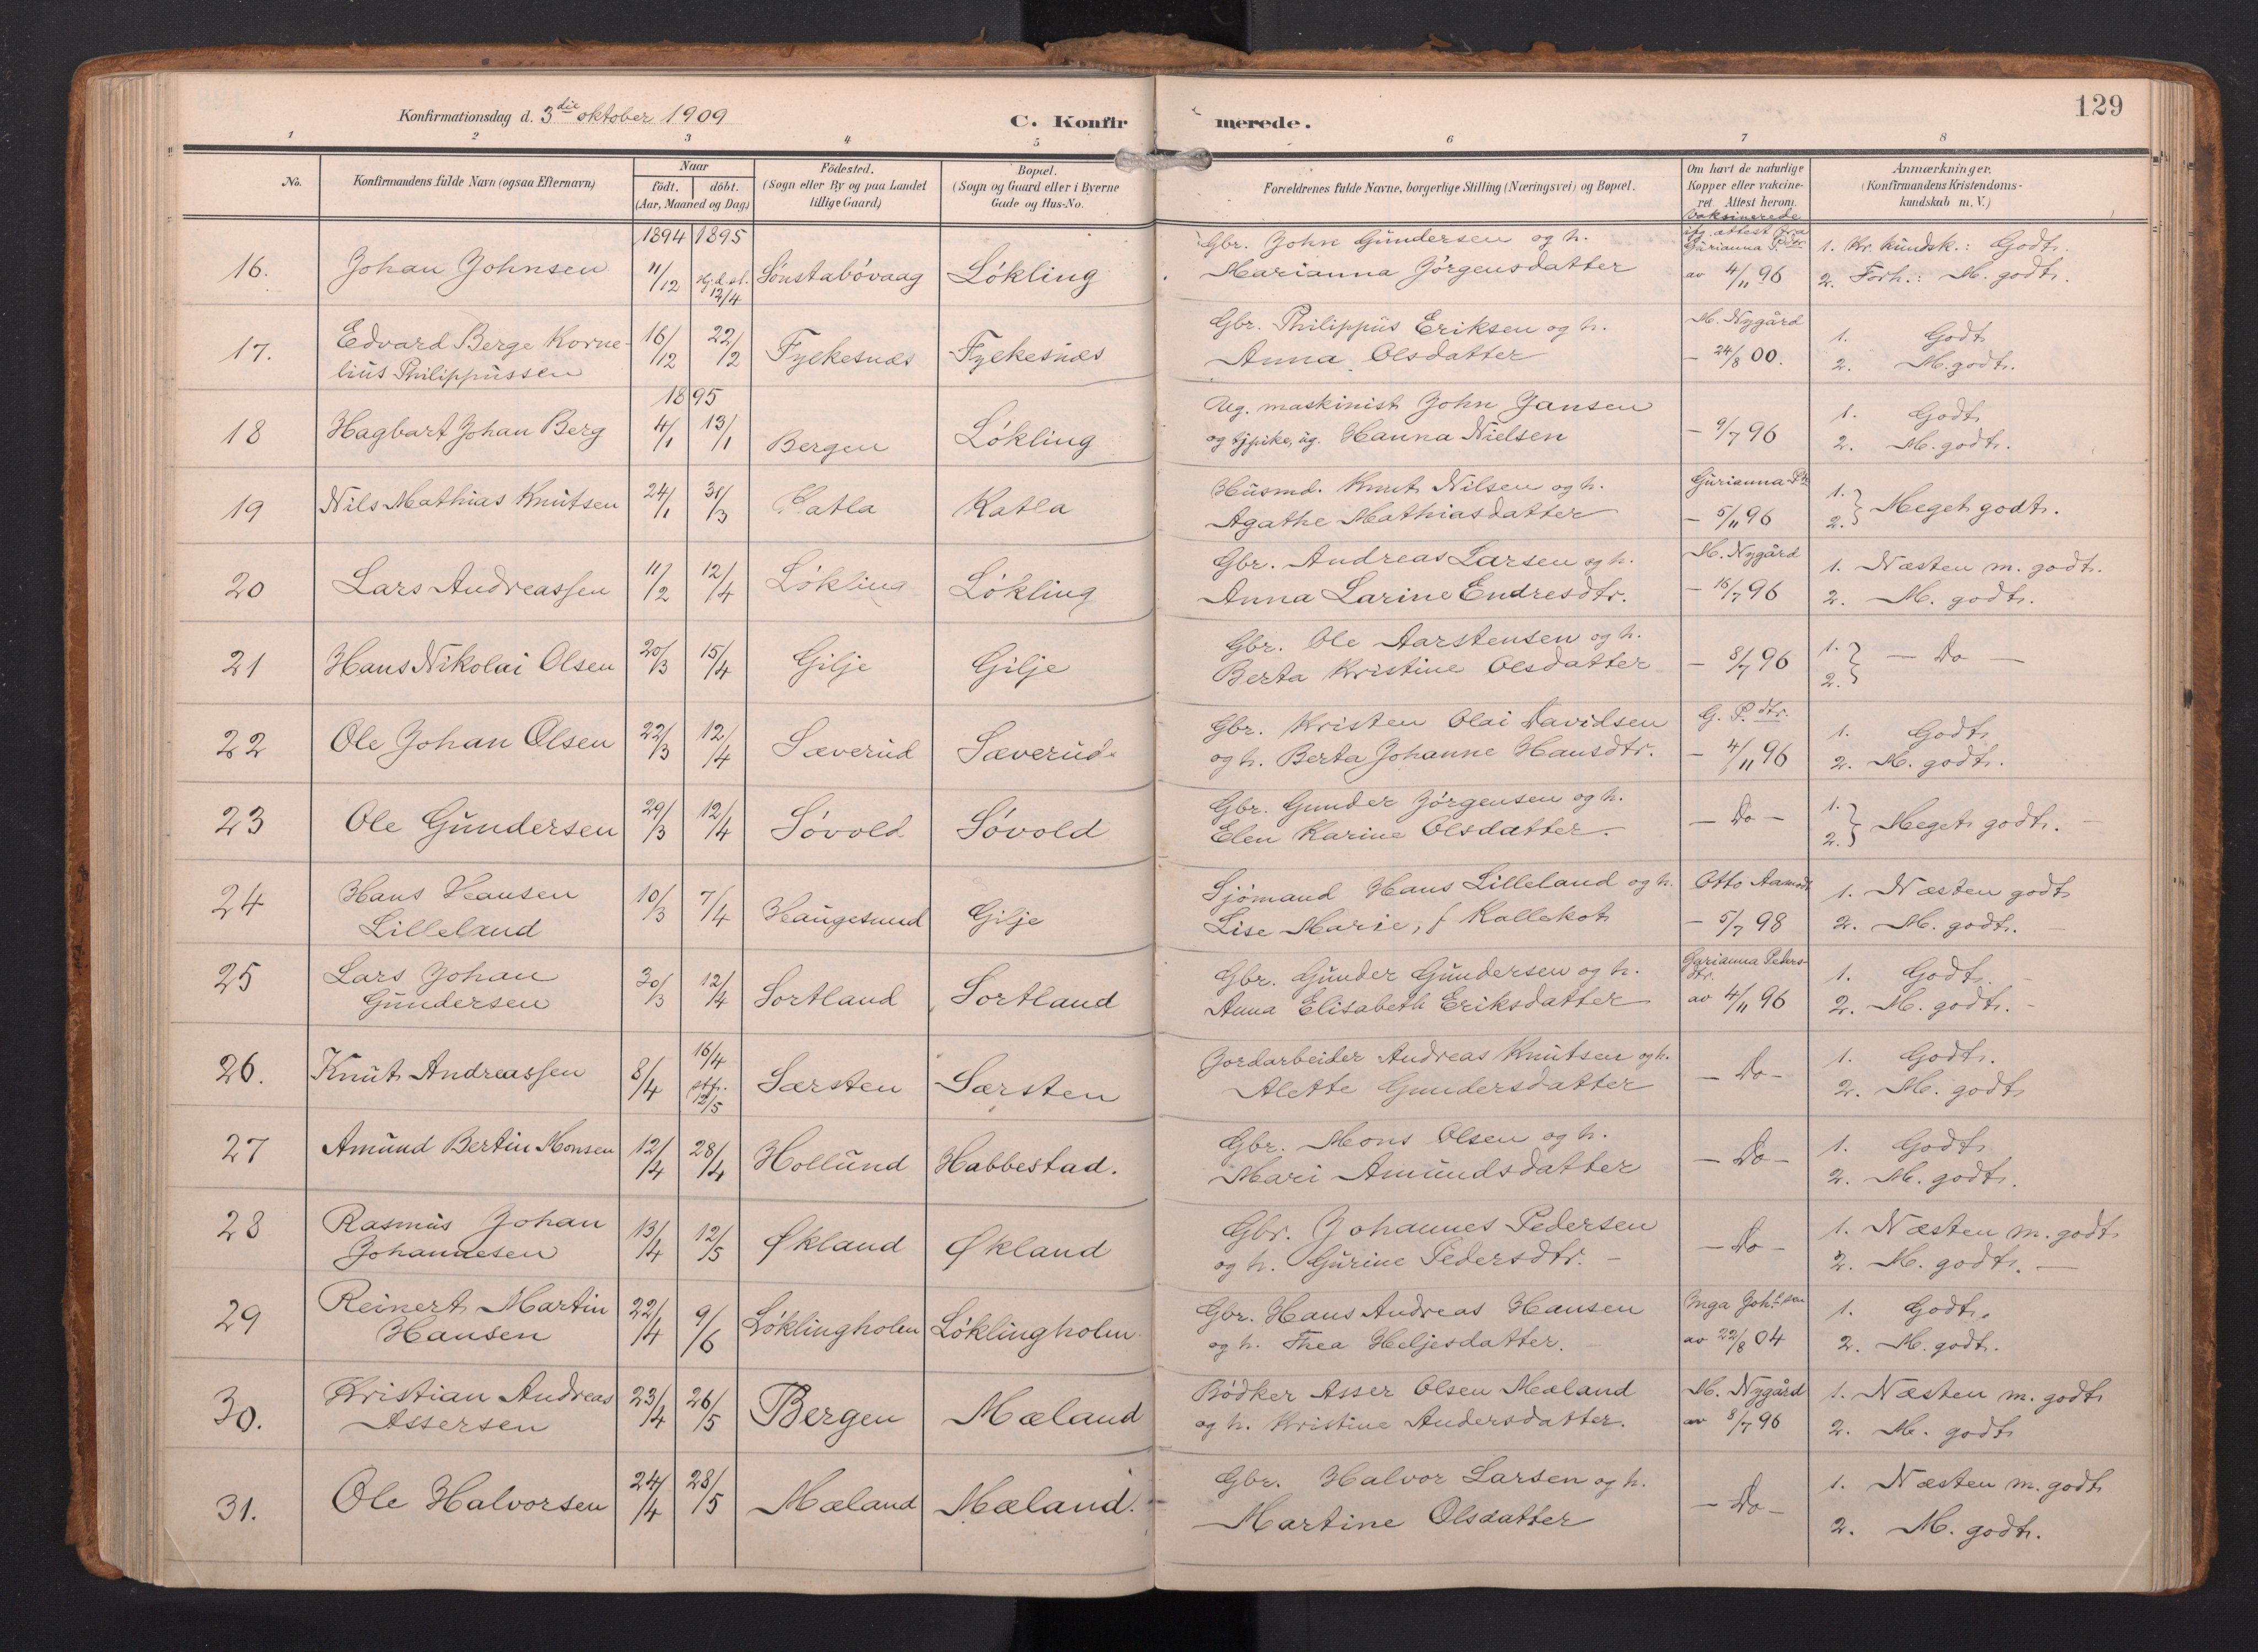 129
Konfirmationsdag d. 3die oktober 1909
C. Konfirmerede.
1 2 3 4 5 6 7 8
No. Konfirmandens fulde Navn (ogsaa Efternavn) Naar født. døbt. (Aar, Maaned og Dag) Fødested. (Sogn eller By og paa Landet tillige Gaard) Bopæl. (Sogn og Gaard eller i Byerne Gade og Hus-No. Forældrenes fulde Navne, borgerlige Stilling (Næringsvei) og Bopæl. Om havt de naturlige Kopper eller vakcineret. Attest herom. Anmærkninger. (Konfirmandens Kristendomskundskab m. V.)
1894 1895 vaksinerede ifg. attest fra
16. Johan Johnsen 11/12 hj.d. st. 12/4 Sønstabøvaag Løkling Gbr. John Gundersen og h. Marianna Jørgensdatter Gurianna P.dtr av 4/11 96 1. Kr. kundsk.: Godt. 2. Forh.: M. godt.
17. Edvard Berge Kornelius Philippussen 16/12 22/2 Fylkesnæs Fylkesnæs Gbr. Philippus Eriksen og h. Anna Olsdatter M. Nygård - 24/8 00. 1. Godt 2. M. godt.
1895
18 Hagbart Johan Berg 4/1 13/1 Bergen Løkling Ug. maskinist John Jansen og tjpike, ug. Hanna Nielsen - 9/7 96 1. Godt 2. M. godt.
19 Nils Mathias Knutsen 24/1 31/3 Katla Katla Husmd. Knut Nilsen og h. Agathe Mathiasdatter Gurianna - 5/11 96 1. 2. Meget godt.
20 Lars Andreassen 11/2 12/4 Løkling Løkling Gbr. Andreas Larsen og h. Anna Larine Endresdtr. M. Nygård - 16/7 96 1. Næsten m. godt. 2. M. godt.
21 Hans Nikolai Olsen 20/3 15/4 Gilje Gilje Gbr. Ole Aarstensen og h. Berta Kristine Olsdatter - 8/7 96 1. 2. - Do -
22 Ole Johan Olsen 22/3 12/4 Sæverud Sæverud Gbr. Kristen Olai Davidsen og h. Berta Johanne Hansdtr. G. P. dtr. - 4/11 96 1. Godt 2. M. godt.
23 Ole Gundersen 29/3 12/4 Søvold Søvold Gbr. Gunder Jørgensen og h. Elen Karine Olsdatter. - Do - 1. 2. Meget godt. -
24 Hans Hansen Lilleland 10/3 7/4 Haugesund Gilje Sjømand Hans Lilleland og h. Lise Marie, f Kallekot Otto Aamodt - 5/7 98 1. Næsten godt 2. M. godt.
25 Lars Johan Gundersen 30/3 12/4 Sortland Sortland Gbr. Gunder Gundersen og h. Anna Elisabeth Eriksdatter Gurianna Pedersdtr. av 4/11 96 1. Godt. 2. M. godt. -
26. Knut Andreassen 8/4 16/4 stf. 12/5 Særsten Særsten Jordarbeider Andreas Knutsen og h. Alette Gundersdatter - Do - 1. Godt. 2. M. godt
27 Amund Bertin Monsen 12/4 28/4 Hollund Habbestad. Gbr. Mons Olsen og h. Mari Amundsdatter - Do - 1. Godt 2. M. godt.
28 Rasmus Johan Johannesen 13/4 12/5 Økland Økland Gbr. Johannes Pedersen og h. Gurine Pedersdtr. - - Do - 1. Næsten m. godt 2. M. godt. -
29 Reinert Martin Hansen 22/4 9/6 Løklingholm Løklingholm Gbr. Hans Andreas Hansen og h. Thea Heljesdatter. Inga Joh.sen av 22/8 04 1. Godt. 2. M. godt.
30. Kristian Andreas Assersen 23/4 26/5 Bergen Mæland Bødker Asser Olsen Mæland og h. Kristine Andersdatter. M. Nygård av 8/7 96 1. Næsten m. godt 2. M. godt
31. Ole Halvorsen 24/4 23/5 Mæland Mæland. Gbr. Halvor Larsen og h. Martine Olsdatter - Do - 1. Næsten m. godt 2. M. godt.